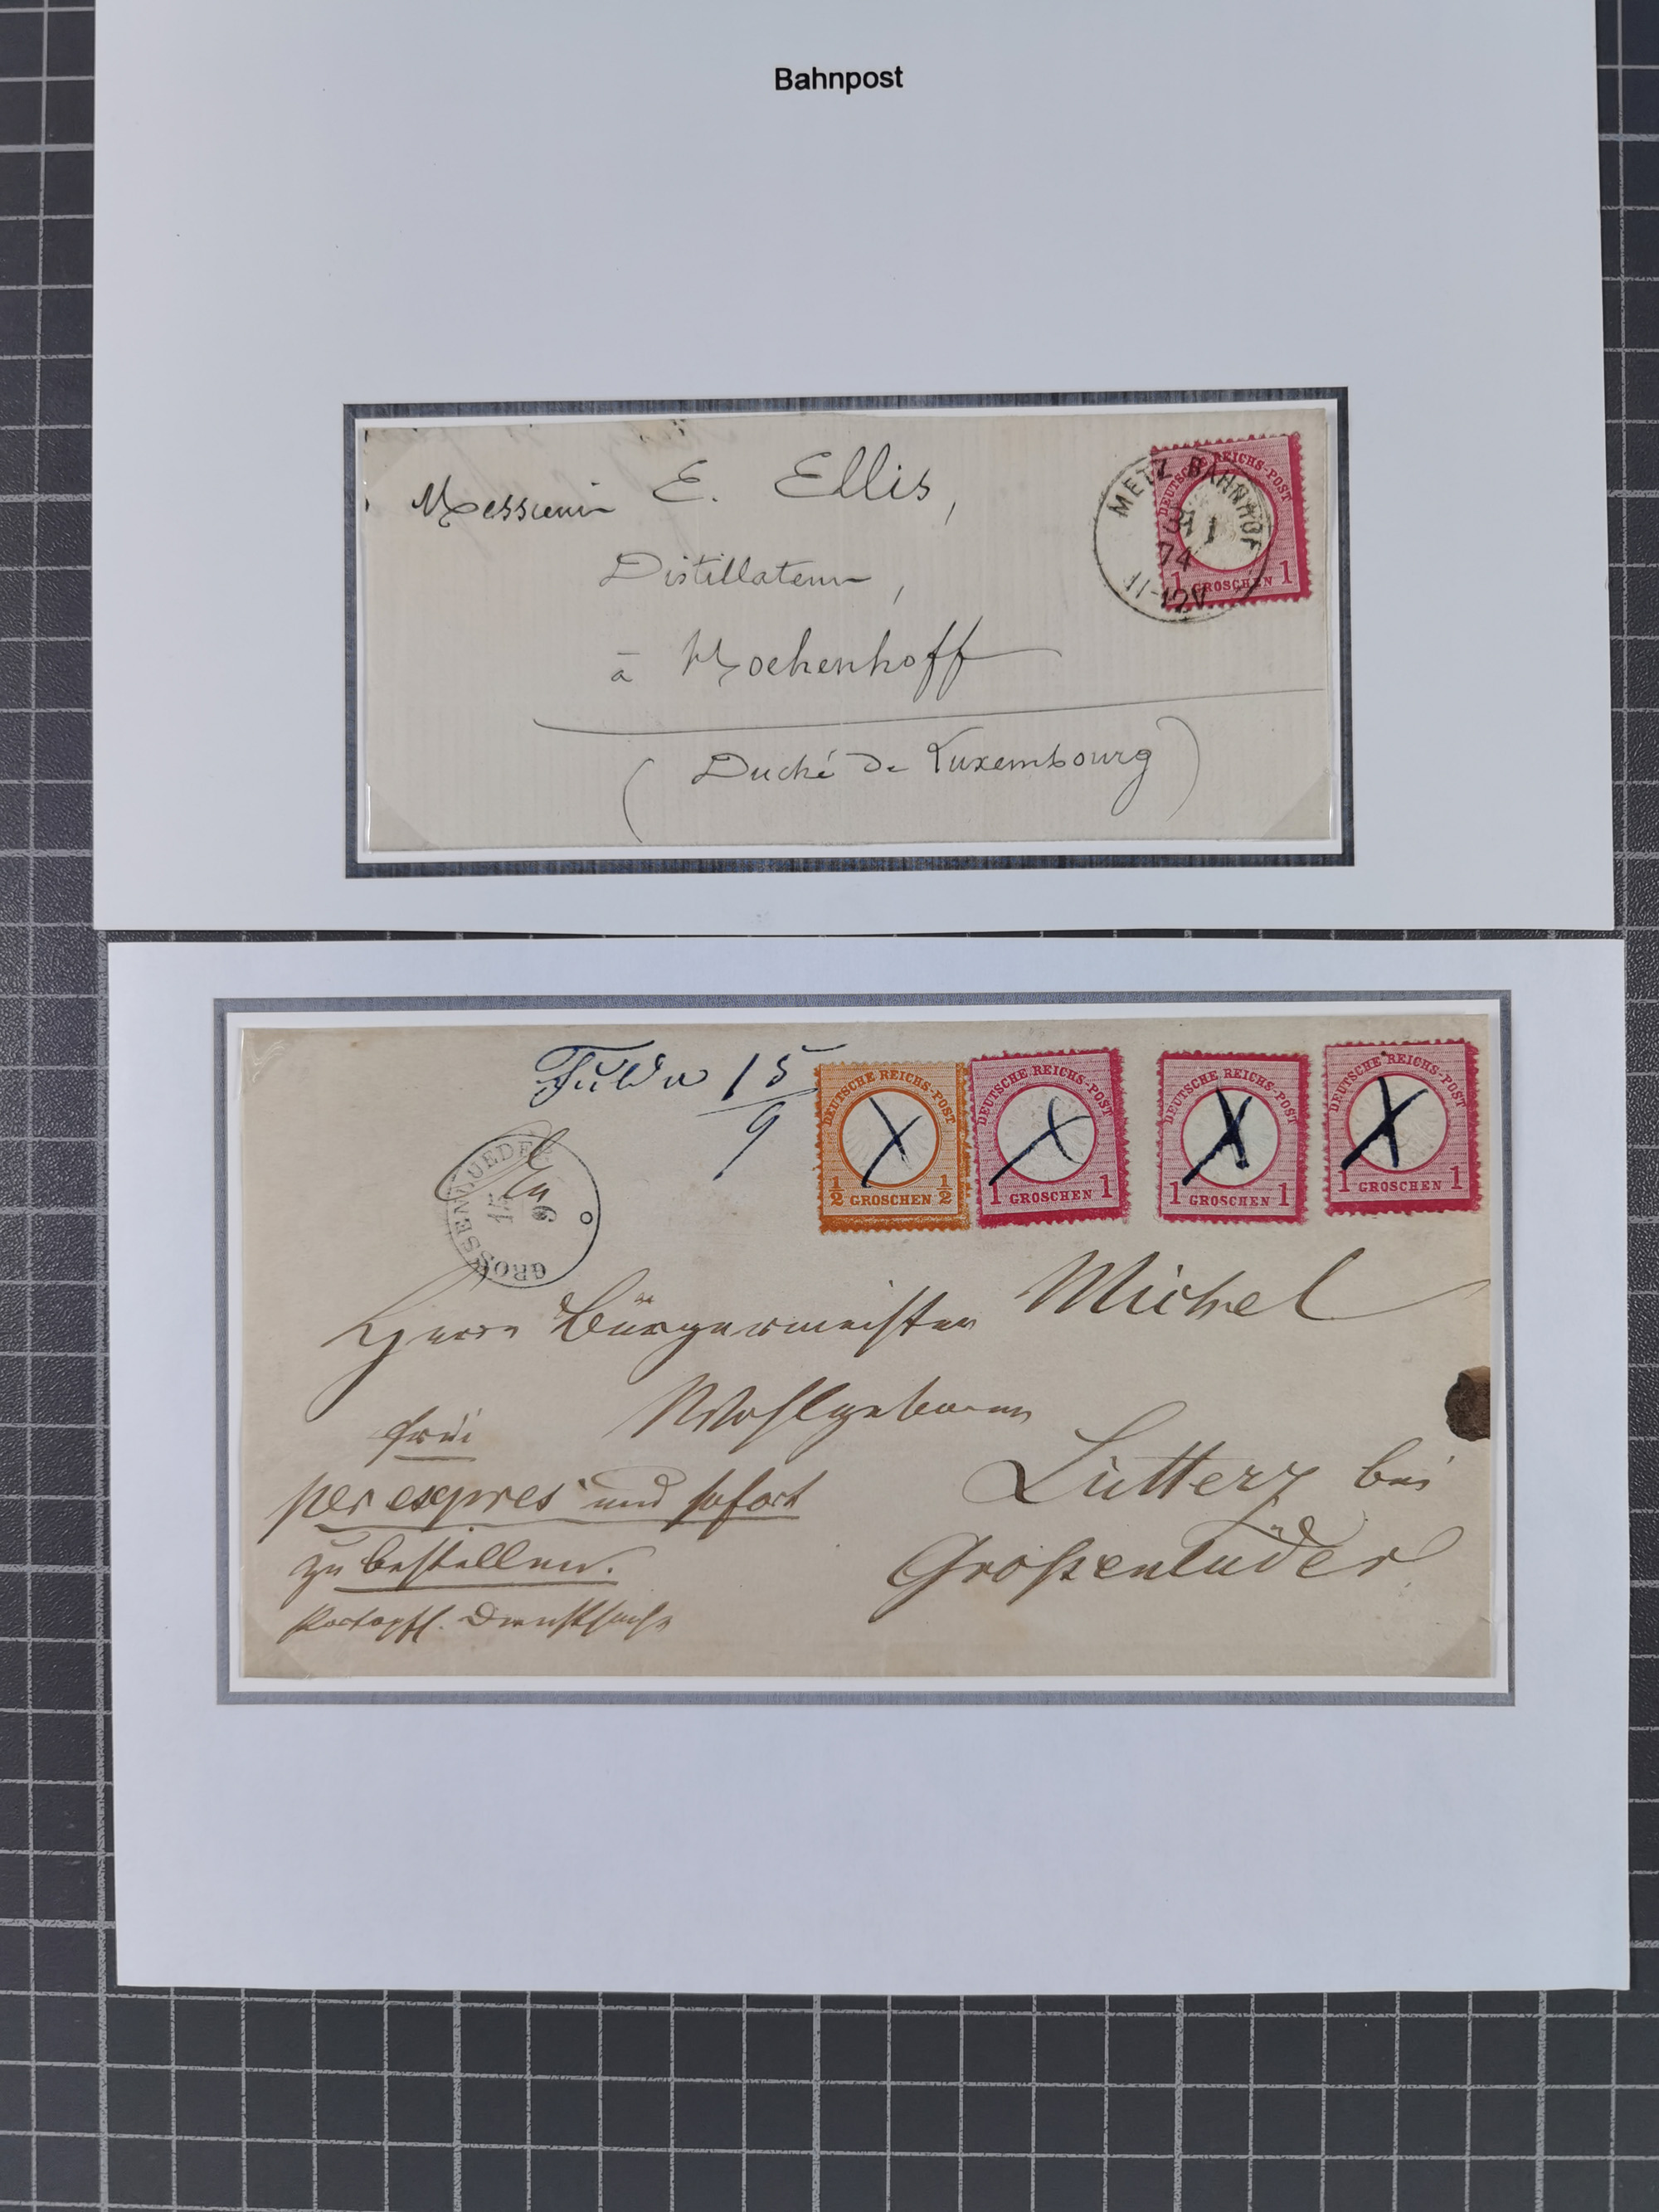 Bahnpost
Messieurs E. Ellis,
Distillateur,
à
(Duché de Luxembourg)
DEUTSCHE REICHS-POST
1 GROSCHEN 1
METZ BAHNHOF
1
74
11-12V
Fulda 15/9
DEUTSCHE REICHS-POST
½ GROSCHEN ½
DEUTSCHE REICHS-POST
1 GROSCHEN 1
DEUTSCHE REICHS-POST
1 GROSCHEN 1
DEUTSCHE REICHS-POST
1 GROSCHEN 1
GROSSENLUEDER
15
9
Herrn Bürgermeister Michel
Wohlgeboren
frei
per expres und sofort
zu bestellen.
Portopfl. Dienstsache
Lütterz bei
Großenlüder